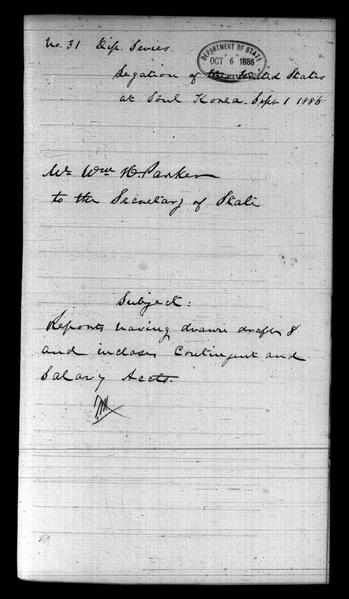 No. 31 Dip. Series.
DEPARTMENT OF STATE
OCT 6 1886
Legation of the United States
at Söul Korea. Sept 1 1886
Mr Wm H. Parker
to the Secretary of State
Subject:
Reports having drawn drafts 8
and incloses Contingent and
Salary Accts.